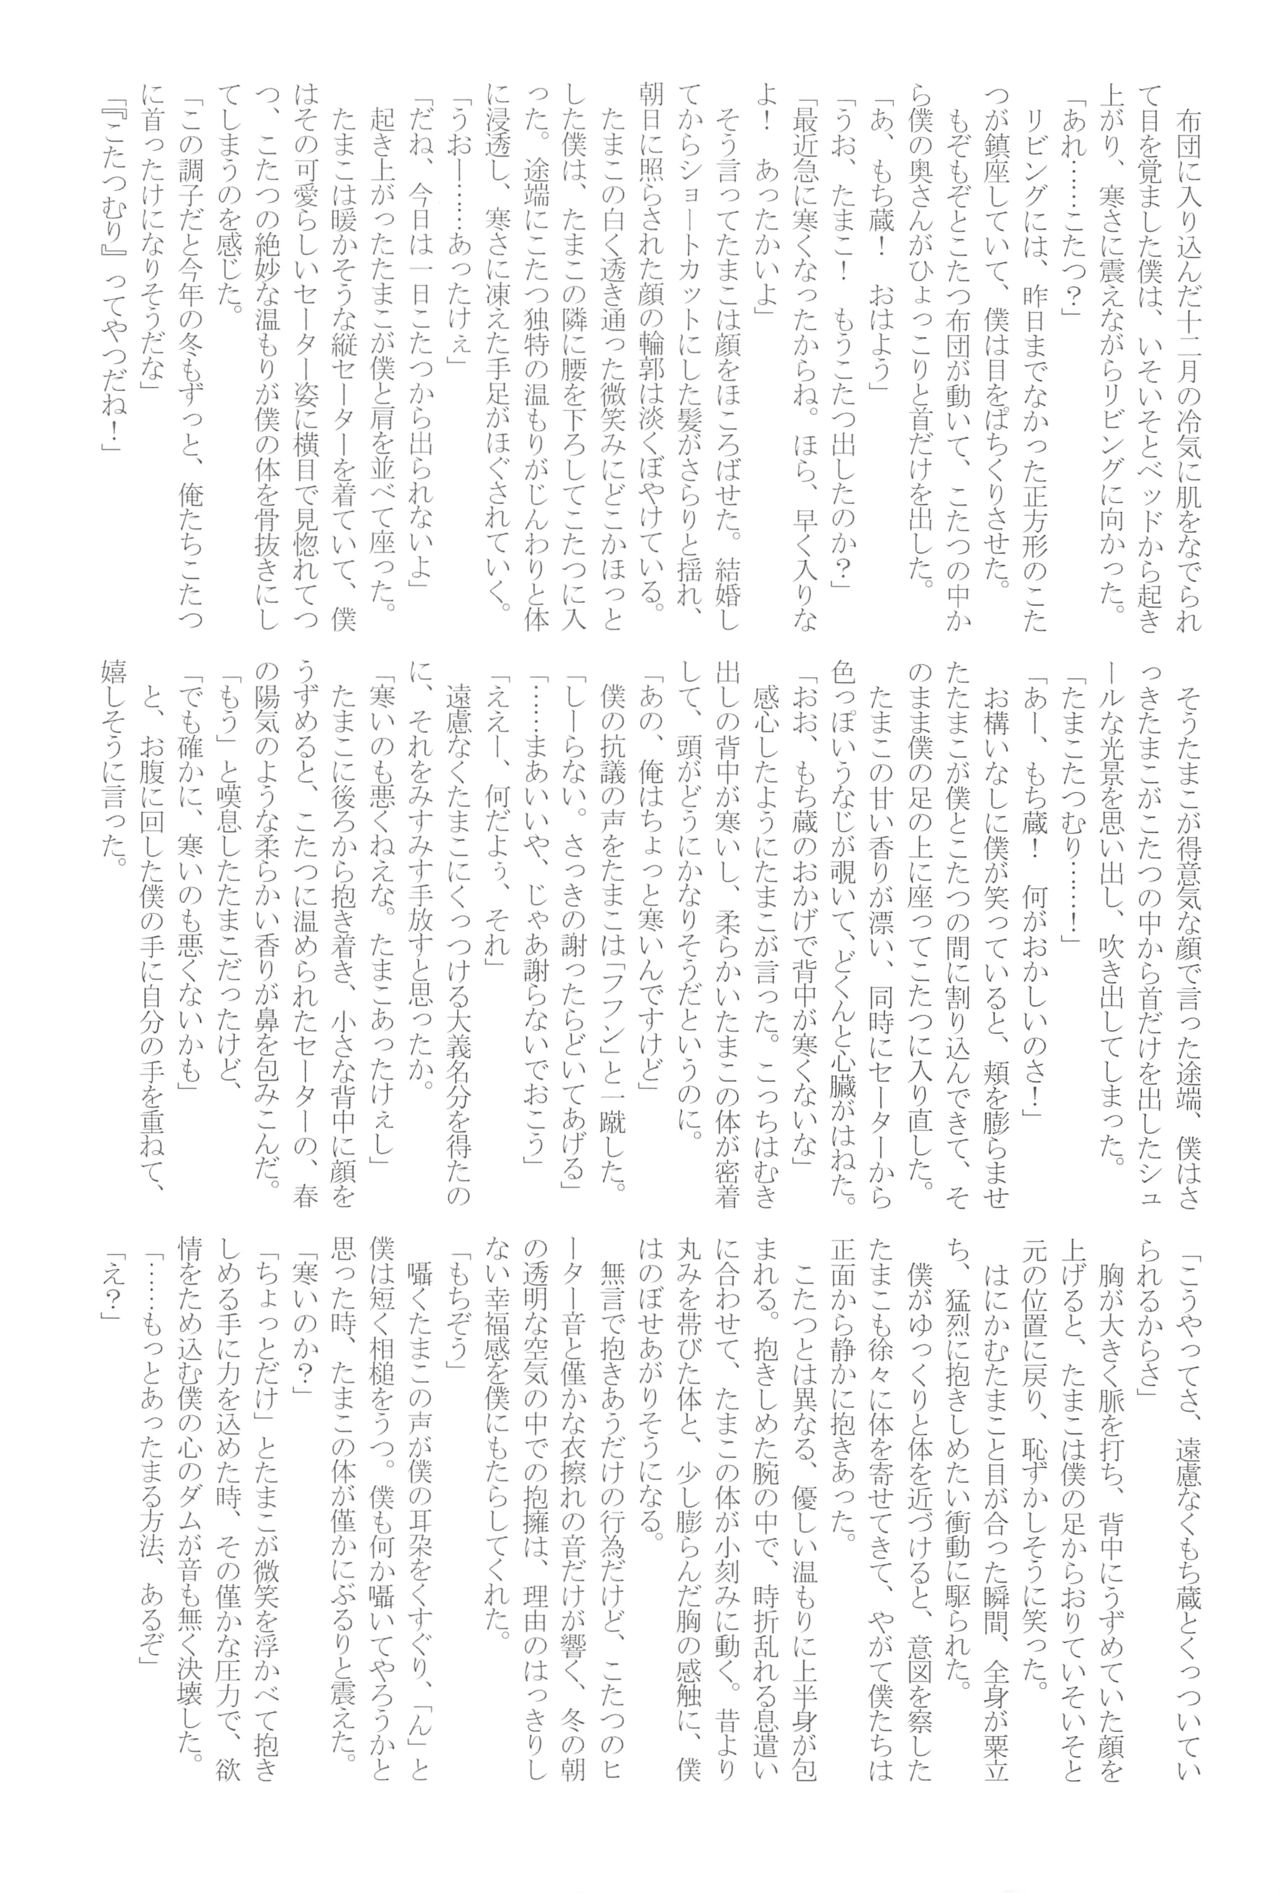 布団に入り込んだ十二月の冷気に肌をなでられ
て目を覚ました僕は、いそいそとベッドから起き
上がり、寒さに震えながらリビングに向かった。
「あれ……こたつ？」
リビングには、昨日までなかった正方形のこた
つが鎮座していて、僕は目をぱちくりさせた。
もぞもぞとこたつ布団が動いて、こたつの中か
ら僕の奥さんがひょっこりと首だけを出した。
「あ、もち蔵！　おはよう」
「うお、たまこ！　もうこたつ出したのか？」
「最近急に寒くなったからね。ほら、早く入りな
よ！　あったかいよ」
そう言ってたまこは顔をほころばせた。結婚し
てからショートカットにした髪がさらりと揺れ、
朝日に照らされた顔の輪郭は淡くぼやけている。
たまこの白く透き通った微笑みにどこかほっと
した僕は、たまこの隣に腰を下ろしてこたつに入
った。途端にこたつ独特の温もりがじんわりと体
に浸透し、寒さに凍えた手足がほぐされていく。
「うおー……あったけぇ」
「だね、今日は一日こたつから出られないよ」
起き上がったたまこが僕と肩を並べて座った。
たまこは暖かそうな縦セーターを着ていて、僕
はその可愛らしいセーター姿に横目で見惚れてつ
つ、こたつの絶妙な温もりが僕の体を骨抜きにし
てしまうのを感じた。
「この調子だと今年の冬もずっと、俺たちこたつ
に首ったけになりそうだな」
「『こたつむり』ってやつだね！」
そうたまこが得意気な顔で言った途端、僕はさ
っきたまこがこたつの中から首だけを出したシュ
ールな光景を思い出し、吹き出してしまった。
「たまこたつむり……！」
「あー、もち蔵！　何がおかしいのさ！」
お構いなしに僕が笑っていると、頬を膨らませ
たたまこが僕とこたつの間に割り込んできて、そ
のまま僕の足の上に座ってこたつに入り直した。
たまこの甘い香りが漂い、同時にセーターから
色っぽいうなじが覗いて、どくんと心臓がはねた。
「おお、もち蔵のおかげで背中が寒くないな」
感心したようにたまこが言った。こっちはむき
出しの背中が寒いし、柔らかいたまこの体が密着
して、頭がどうにかなりそうだというのに。
「あの、俺はちょっと寒いんですけど」
僕の抗議の声をたまこは「フフン」と一蹴した。
「しーらない。さっきの謝ったらどいてあげる」
「……まあいいや、じゃあ謝らないでおこう」
「ええー、何だよぅ、それ」
遠慮なくたまこにくっつける大義名分を得たの
に、それをみすみす手放すと思ったか。
「寒いのも悪くねえな。たまこあったけぇし」
たまこに後ろから抱き着き、小さな背中に顔を
うずめると、こたつに温められたセーターの、春
の陽気のような柔らかい香りが鼻を包みこんだ。
「もう」と嘆息したたまこだったけど、
「でも確かに、寒いのも悪くないかも」
と、お腹に回した僕の手に自分の手を重ねて、
嬉しそうに言った。
「こうやってさ、遠慮なくもち蔵とくっついてい
られるからさ」
胸が大きく脈を打ち、背中にうずめていた顔を
上げると、たまこは僕の足からおりていそいそと
元の位置に戻り、恥ずかしそうに笑った。
はにかむたまこと目が合った瞬間、全身が粟立
ち、猛烈に抱きしめたい衝動に駆られた。
僕がゆっくりと体を近づけると、意図を察した
たまこも徐々に体を寄せてきて、やがて僕たちは
正面から静かに抱きあった。
こたつとは異なる、優しい温もりに上半身が包
まれる。抱きしめた腕の中で、時折乱れる息遣い
に合わせて、たまこの体が小刻みに動く。昔より
丸みを帯びた体と、少し膨らんだ胸の感触に、僕
はのぼせあがりそうになる。
無言で抱きあうだけの行為だけど、こたつのヒ
ーター音と僅かな衣擦れの音だけが響く、冬の朝
の透明な空気の中での抱擁は、理由のはっきりし
ない幸福感を僕にもたらしてくれた。
「もちぞう」
囁くたまこの声が僕の耳朶をくすぐり、「ん」と
僕は短く相槌をうつ。僕も何か囁いてやろうかと
思った時、たまこの体が僅かにぶるりと震えた。
「寒いのか？」
「ちょっとだけ」とたまこが微笑を浮かべて抱き
しめる手に力を込めた時、その僅かな圧力で、欲
情をため込む僕の心のダムが音も無く決壊した。
「……もっとあったまる方法、あるぞ」
「え？」